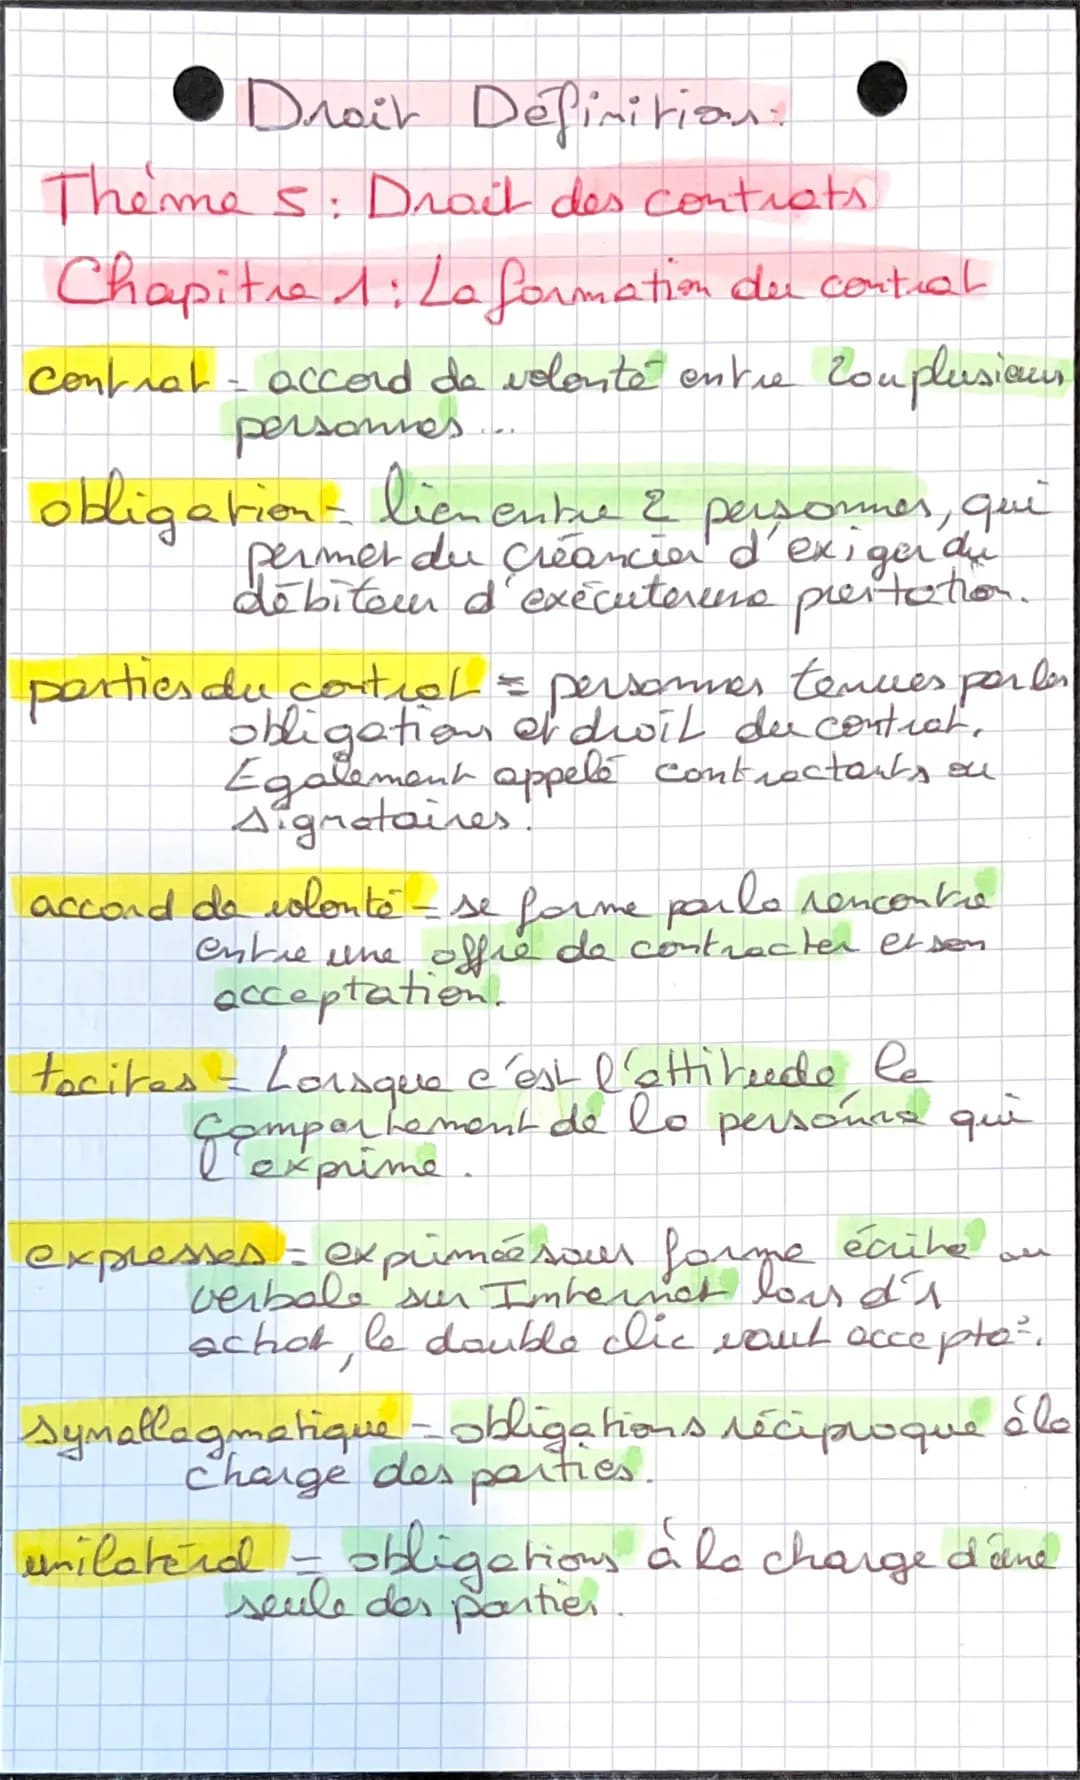 Droit Définition:
Thème 5: Droit des contrats
Chapitre 1: La formation du contrat
contrat = accord de volonté entre 2 ou plusieurs
personnes...
obligation = lien entre 2 personnes, qui
permet du créancier d'exiger du
débiteur d'exécuter une prestation.
parties du contrat = personnes tenues par les
obligations et droit du contrat.
Egalement appelé contractants ou
signataires.
accord de volonté = se forme par la rencontre
entre une offre de contracter et son
acceptation.
tacites = Lorsque c'est l'attitude, le
comportement de la personne qui
l'exprime.
expresses = exprimée sous forme écrite ou
verbale sur Internet lors d'1
achat, le double clic vaut accepta°.
synallagmatique = obligations réciproque à la
charge des parties.
unilatéral = obligations à la charge d'une
seule des parties.